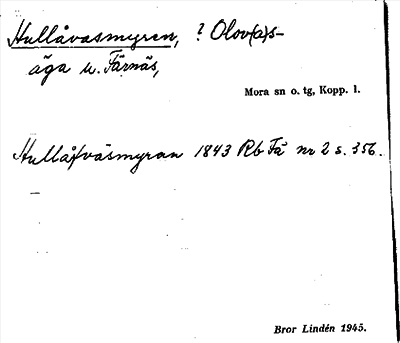 Hullåvasmyren, ? Olov(a)s-
äga u. Färnäs,
Mora sn o. tg, Kopp. l.
Hullå/väsmyran 1843 Rb Fä nr 2 s. 356.
Bror Lindén 1945.